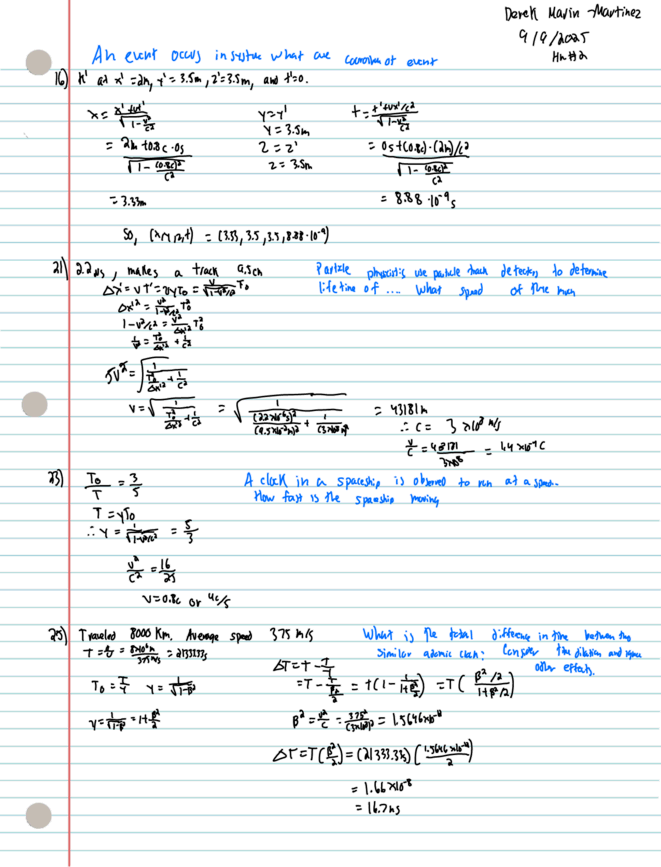 Derek Marin-Martinez
9/9/2025
Hw #2
An event occurs in system what are coordinates of event
16) K' at x' = 2m, y' = 3.5m, z' = 3.5m, and t' = 0.
x = x' + vt' / √(1 - v²/c²)    y = y'    t = t' + vx'/c² / √(1 - v²/c²)
y = 3.5m
= 2m + 0.8c · 0s / √(1 - (0.8c)²/c²)    z = z'    = 0s + (0.8c) · (2m)/c² / √(1 - (0.8c)²/c²)
z = 3.5m
= 3.33m    = 8.88 · 10⁻⁹ s
So, (x, y, z, t) = (3.33, 3.5, 3.5, 8.88 · 10⁻⁹)
21) 2.2 μs, makes a track 9.5cm    Particle physicists use particle track detectors to determine
Δx' = vT' = vγT₀ = v/√(1-v²/c²) T₀    lifetime of .... What speed of the
Δx'² = v²/1-v²/c² T₀²
1 - v²/c² = v²/Δx'² T₀²
1/v² = T₀²/Δx'² + 1/c²
√v² = √(1 / T₀²/Δx'² + 1/c²)
v = √(1 / T₀²/Δx'² + 1/c²) = √(1 / (2.2×10⁻⁶s)²/(9.5×10⁻²m)² + 1/(3×10⁸)²) = 43181m
∴ c = 3 × 10⁸ m/s
v/c = 43181/3×10⁸ = 1.4 × 10⁻⁴ c
23) T₀/T = 3/5    A clock in a spaceship is observed to run at a speed..
How fast is the spaceship moving
T = γT₀
∴ γ = 1/√(1-v²/c²) = 5/3
v²/c² = 16/25
v = 0.8c or 4c/5
25) Traveled 8000 km. Average speed 375 m/s    What is the total difference in time between the
T = = 8×10⁶m / 375 m/s = 21333.33s    similar atomic clock: Consider time dilation and
ΔT = T - T/γ    other effects.
T₀ = T/γ    γ = 1/√(1-β²)    = T - = T(1 - ) = T( β²/2 / 1+β²/2 )
γ = 1/√(1-β²) = 1 + β²/2    β² = v²/c² = 375²/(3×10⁸)² = 1.5646×10⁻¹²
ΔT = T(β²/2) = (21333.33s)( /2)
= 1.66×10⁻⁸
= 16.7ns